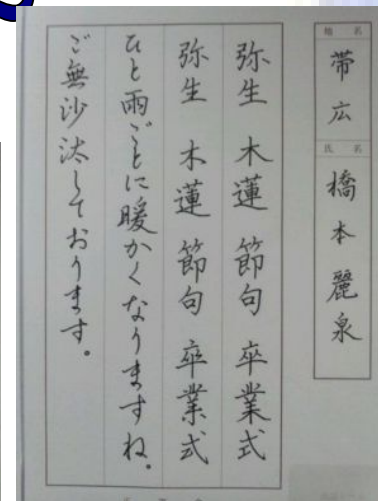 地名 帯広
氏名 橋本麗泉
弥生 木蓮 節句 卒業式
弥生 木蓮 節句 卒業式
ひと雨ごとに暖かくなりますね。
ご無沙汰しております。